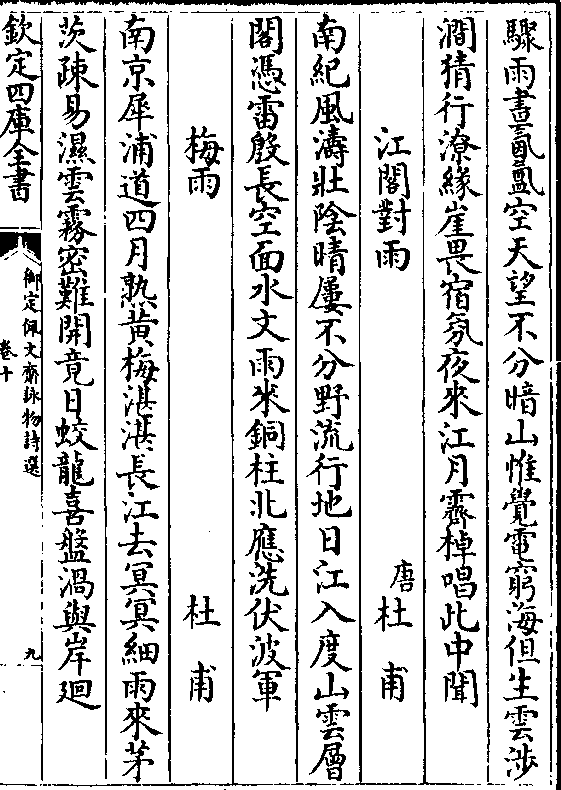 驟雨晝氤氳空天望不分暗山惟覺電窮海但生雲涉
澗猜行潦緣崖畏宿氛夜來江月霽棹唱此中聞
江閣對雨 唐杜甫
南紀風濤壯陰晴屢不分野流行地日江入度山雲層
閣憑雷殷長空面水文雨來銅柱北應洗伏波軍
梅雨 杜甫
南京犀浦道四月熟黃梅湛湛長江去冥冥細雨來茅
茨疎易濕雲霧密難開竟日蛟龍喜盤渦與岸廻
欽定四庫全書
御定佩文齋詠物詩選
卷十
九